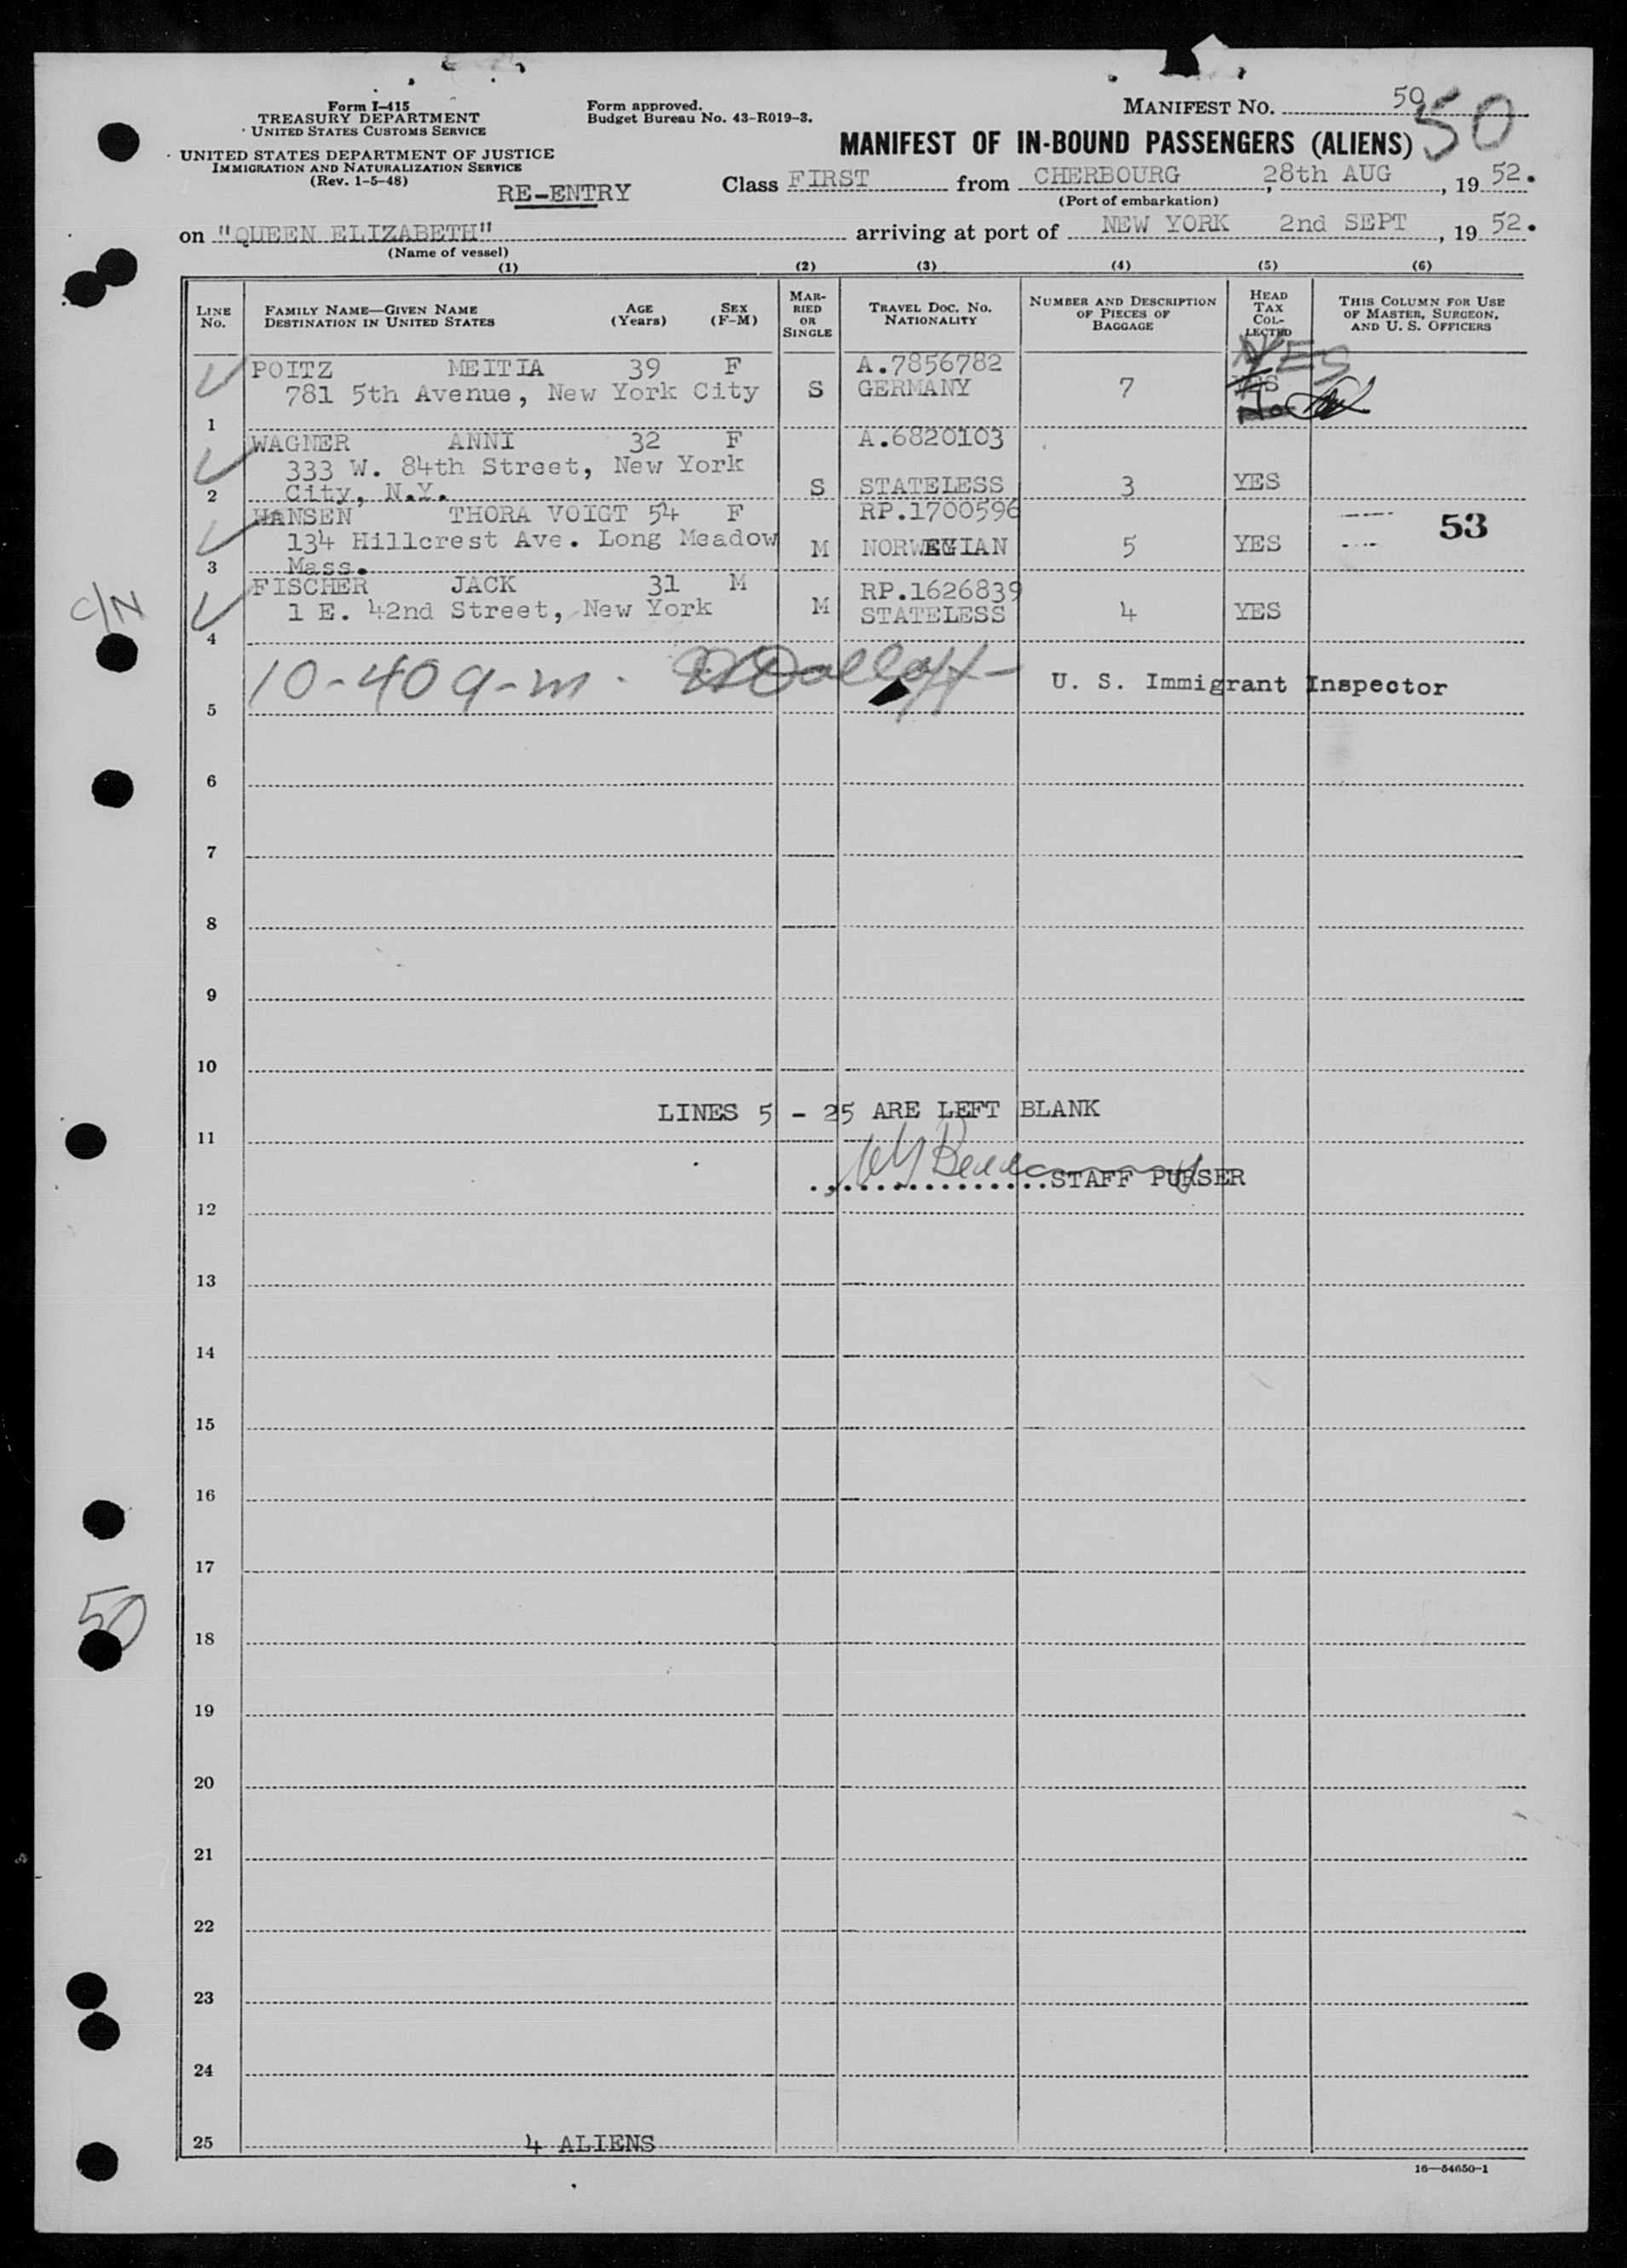 Form I-415
TREASURY DEPARTMENT
UNITED STATES CUSTOMS SERVICE
UNITED STATES DEPARTMENT OF JUSTICE
IMMIGRATION AND NATURALIZATION SERVICE
(Rev. 1-5-48)
RE-ENTRY
Form approved.
Budget Bureau No. 43-R019-3.
MANIFEST NO. 50
50
MANIFEST OF IN-BOUND PASSENGERS (ALIENS)
Class FIRST from CHERBOURG, 28th AUG, 19 52.
(Port of embarkation)
on "QUEEN ELIZABETH" arriving at port of NEW YORK 2nd SEPT, 19 52.
(Name of vessel)
(1) (2) (3) (4) (5) (6)
LINE No.
FAMILY NAME—GIVEN NAME
DESTINATION IN UNITED STATES
AGE (Years)
SEX (F-M)
MARRIED OR SINGLE
TRAVEL DOC. NO. NATIONALITY
NUMBER AND DESCRIPTION OF PIECES OF BAGGAGE
HEAD TAX COLLECTED
THIS COLUMN FOR USE OF MASTER, SURGEON, AND U. S. OFFICERS
POITZ MEITIA 39 F A.7856782 YES
781 5th Avenue, New York City S GERMANY 7 YES
1 No
WAGNER ANNI 32 F A.6820103
333 W. 84th Street, New York
2 City, N.Y. S STATELESS 3 YES
HANSEN THORA VOIGT 54 F RP.1700596 53
134 Hillcrest Ave. Long Meadow M NORWEGIAN 5 YES
3 Mass.
C/N
FISCHER JACK 31 M RP.1626839
1 E. 42nd Street, New York M STATELESS 4 YES
4
10-40 a-m. U. S. Immigrant Inspector
5
6
7
8
9
10
LINES 5 - 25 ARE LEFT BLANK
11
STAFF PURSER
12
13
14
15
16
17
50
18
19
20
21
22
23
24
25 4 ALIENS
16—54650-1